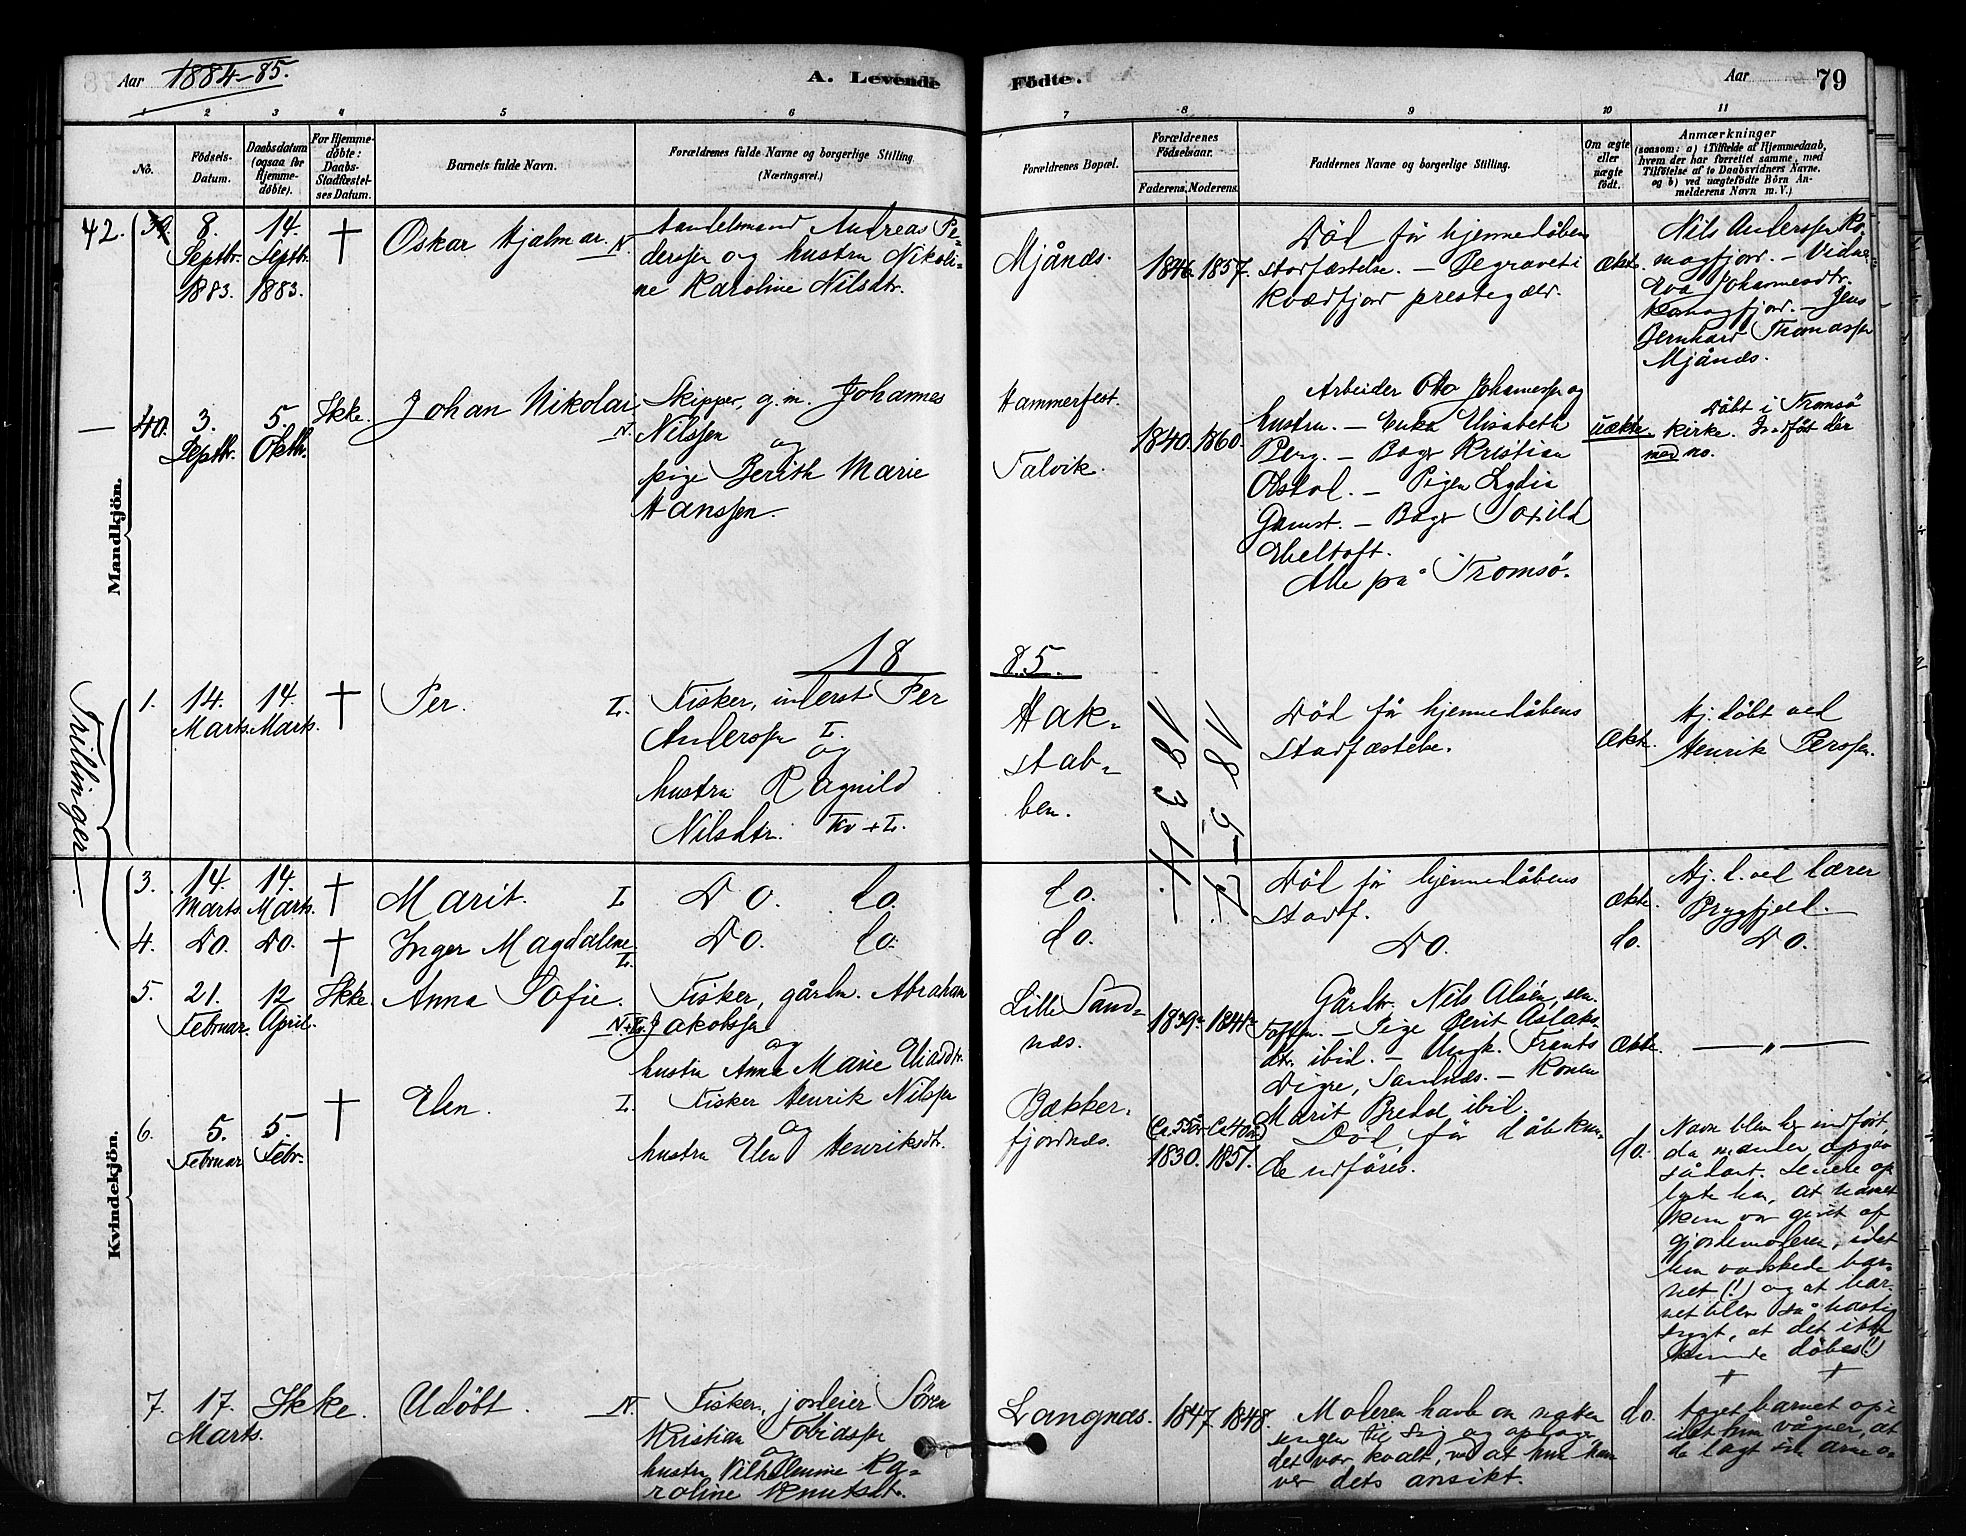 Aar 1884-85.
A. Levende
Födte.
Aar
79
1 2 3 4 5 6 7 8 9 10 11
No.
Födsels-Datum.
Daabsdatum (ogsaa for Hjemme-døbte).
For Hjemme-døbte: Daabs-Stadfæstel-ses Datum.
Barnets fulde Navn.
Forældrenes fulde Navne og borgerlige Stilling. (Næringsvei.)
Forældrenes Bopæl.
Forældrenes Födselsaar.
Faderens. Moderens.
Faddernes Navne og borgerlige Stilling.
Om ægte eller uægte født.
Anmærkninger
(saasom: a) i Tilfælde af Hjemmedaab,
hvem der har forrettet samme, med
Tilføielse af to Daabsvidners Navne.
og b) ved uægtefödte Börn An-
melderens Navn m. V.)
Mandkjön.
42. 39 8. Septbr. 1883. 14. Septbr. 1883. † Oskar Hjalmar. N.
Handelsmand Andreas Pe-
dersen og hustru Nikoli-
ne Karoline Nilsdtr.
Mjånes. 1846. 1857.
Död för hjemmedåbens
stadfæstelse. – Begravet i
Kvædfjord prestegæld.
Ækt.
Nils Anderssen Ko-
magfjord. – Vidne:
Eva Johannesdtr.
Komagfjord. – Jens
Bernhard Thomassen
Mjånes.
– 40. 3. Septbr. 5. Oktbr. Ikke. Johan Nikolai N.
Skipper, g.m. Johannes
Nilssen
og
pige Berith Marie
Hanssen.
Hammerfest.
Talvik.
1840. 1860.
Arbeider Otto Johannessen og
hustru. – Enke Elisabeth
Berg. – Bager Kristian
– Pigen Lydia
– Bager
Ebeltoft.
Alle på Tromsö.
uækte.
Döbt i Tromsö
kirke. Indfört der
med no.
18
85.
Trillinger
1. 14. Marts. 14. Marts. † Per. L.
Fisker, inderst Per
Anderssen L.
og
hustru Ragnild
Nilsdtr. Kv + L.
Hak-
stab-
ben.
1834. 1857.
Död för hjemmedåbens
stadfæstelse.
Ækt.
Hj. döbt ved
Henrik Perssen.
Kvindekjön.
3. 14. Marts. 14. Marts. † Marit. L. Do. do. do.
Död för hjemmedåbens
stadf.
ækte.
Hj. d. ved lærer
Brygfjeld.
4. Do. Do. † Inger Magdalene L. Do. do. do. Do. do. Do.
5. 21. Februar. 12 April. Ikke. Anna Sofie. N+L.
Fisker, gårbr. Abraham
Jakobssen
og
hustru Anna Marie Eliasdtr.
Lille Sand-
næs.
1839. 1841.
Gårbr. Nils Olsen, sen.
– Pige Berit Aslaks-
dtr. ibid. – Ungk. Frants
Digre, Sandnæs. – Konen
Marit Bredal ibid.
Ækte.
– „ –
6. 5. Februar 5. Febr. † Elen. L.
Fisker Henrik Nilssen
og
hustru Elen Henriksdtr.
Bækker-
fjordnæs.
(Ca. 55 år Ca. 40 år)
1830. 1851.
Död, för dåb kun-
de udföres.
do.
Navn blev her indfört,
da manden opgav
sådant. Senere op-
lyste han, at navnet
kun var givet af
gjordemoderen, idet
hun vaskede bar-
net (!) og at bar-
net blev så hastig
sygt, at det ikke
kunde döbes (!)
7. 17. Marts. Ikke. Udöbt. N.
Fisker, jordeier Sören
Kristian Tobiassen
og
hustru Vilhelmine Ka-
roline Knutsdtr.
Langnæs. 1847. 1848.
Moderen havde om natten
sengen til sig og opdagede
det var kvalt, ved at hun hav
ver dets ansikt.
do.
† †
taget barnet op i
idet hun vågner, at
de lagt sin arm o-